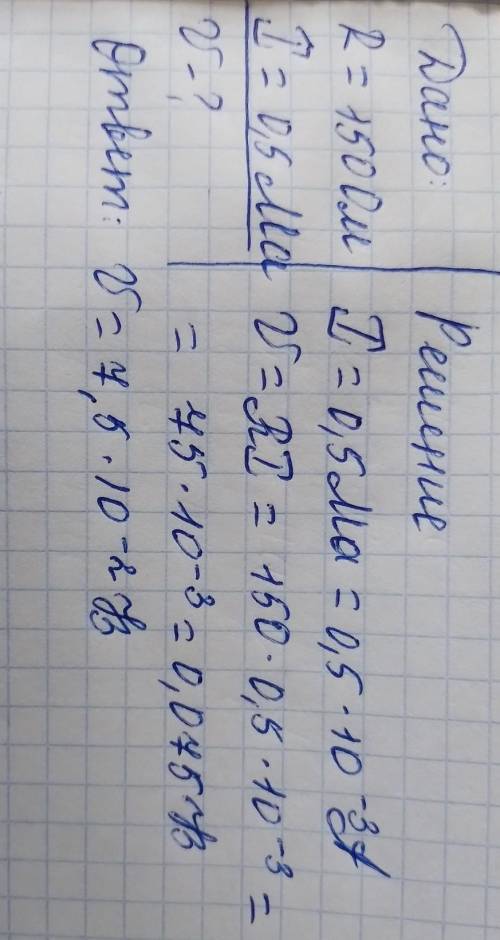 Дано:
R = 150 Ом
I = 0,5 Ма
U = ?
Решение
I = 0,5 Ма = 0,5 · 10⁻³ А
U = RI = 150 · 0,5 · 10⁻³ =
= 75 · 10⁻³ = 0,075 В
Ответ: U = 7,5 · 10⁻² В